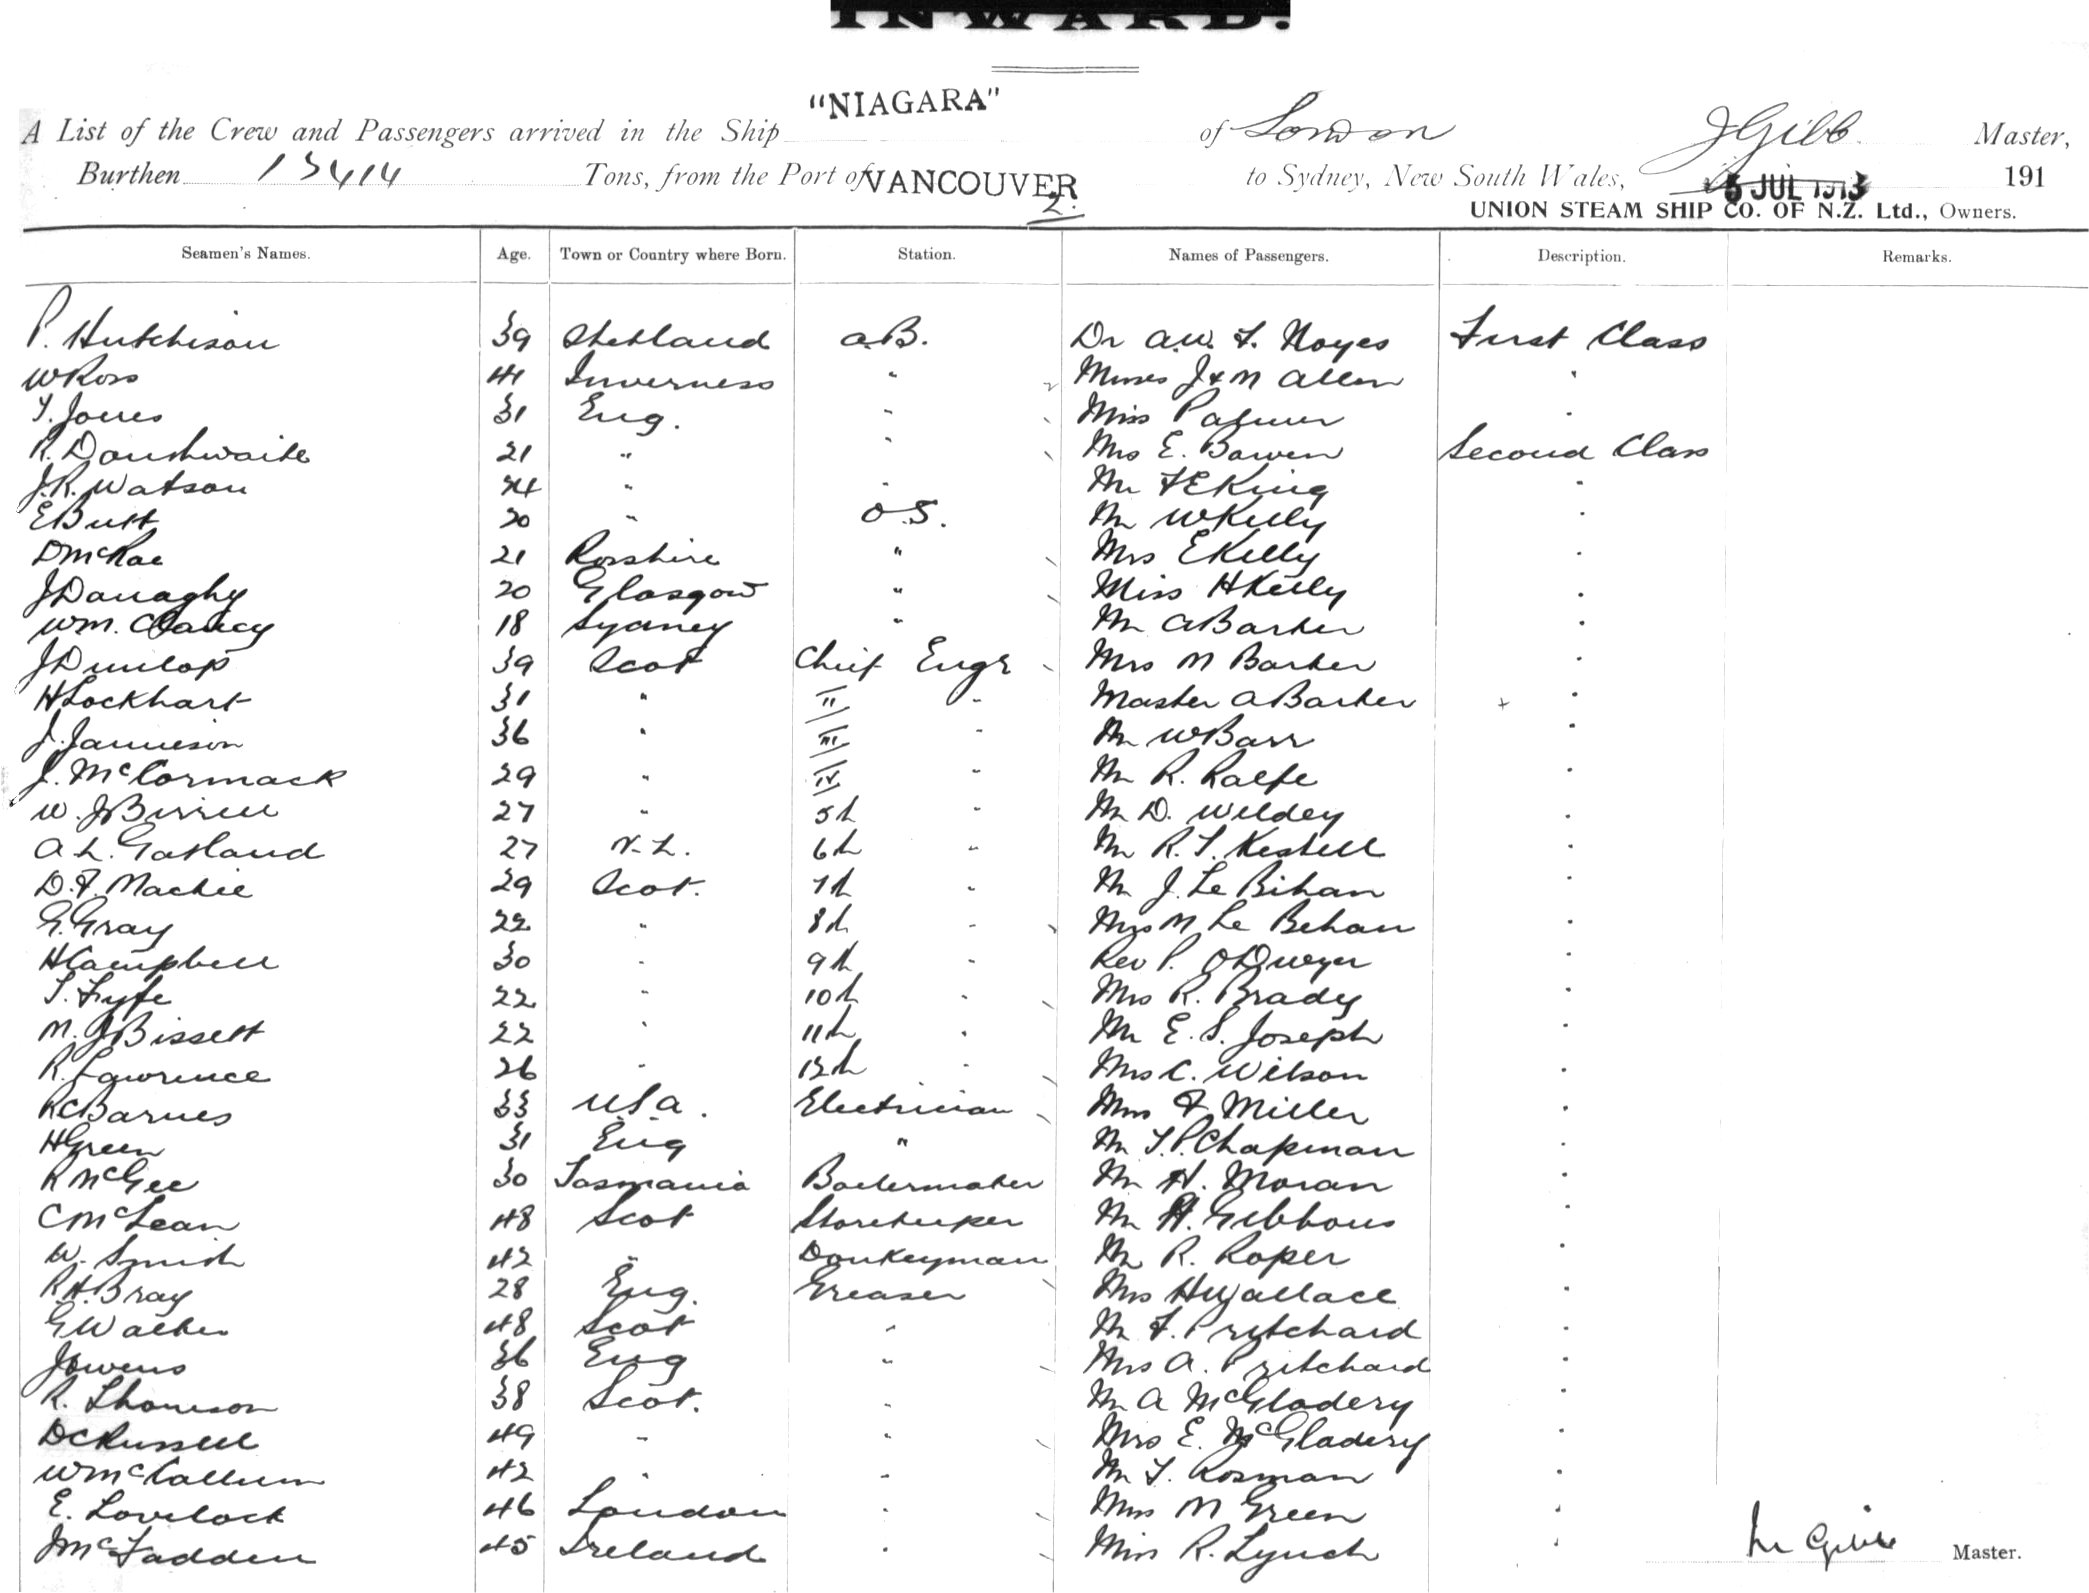 INWARD.
"NIAGARA"
A List of the Crew and Passengers arrived in the Ship of London J Gibb Master,
Burthen 13414 Tons, from the Port of VANCOUVER to Sydney, New South Wales, 5 JUL 1913 191
2. UNION STEAM SHIP CO. OF N.Z. Ltd., Owners.
Seamen's Names. Age. Town or Country where Born. Station. Names of Passengers. Description. Remarks.
P. Hutchison 39 Shetland A.B. Dr A.W. F. Noyes First Class
W Ross 41 Inverness " Misses J & M Allen "
T. Jones 31 Eng. " Miss Palmer "
R. Douthwaite 21 " " Mrs E. Bowen Second Class
J.R. Watson 24 " " Mr F E King "
E Butt 20 " O.S. Mr W Kelly "
D McRae 21 Rosshire " Mrs E Kelly "
J Danaghy 20 Glasgow " Miss H Kelly "
Wm. Clancy 18 Sydney " Mr A Barker "
J Dunlop 39 Scot Chief Engr Mrs M Barker "
H Lockhart 31 " II " Master A Barker "
J. Jamieson 36 " III " Mr W Barr "
J. McCormack 29 " IV " Mr R. Ralfe "
W. J Birrell 27 " 5th " Mr D. Wildey "
A. L. Gatland 27 N.Z. 6th " Mr R. T. Kestell "
D. F. Mackie 29 Scot. 7th " Mr J. Le Bihan "
G. Gray 22 " 8th " Mrs M Le Behan "
H Campbell 30 " 9th " Rev P. O Dwyer "
T. Fyfe 22 " 10th " Mrs R. Brady "
M. J Bissett 22 " 11th " Mr E. S. Joseph "
R. Lawrence 26 " 12th " Mrs C. Wilson "
R C Barnes 33 U.S.A. Electrician Mrs F Miller "
H Green 31 Eng " Mr T. P. Chapman "
R McGee 30 Tasmania Boilermaker Mr H. Moran "
C McLean 48 Scot Storekeeper Mr H. Gibbons "
W. Smith 42 " Donkeyman Mr R. Roper "
R H. Bray 28 Eng. Greaser Mrs H Wallace "
G Walker 48 Scot " Mr F. Pritchard "
J Owens 36 Eng " Mrs A. Pritchard "
R. Thomson 38 Scot. " Mr A McGladery "
D C Russell 49 " " Mrs E. McGladery "
W McCallum 42 " " Mr T. Rosman "
E. Lovelock 46 London " Mrs M Green "
J McFadden 45 Ireland " Miss R. Lynch "
Master.